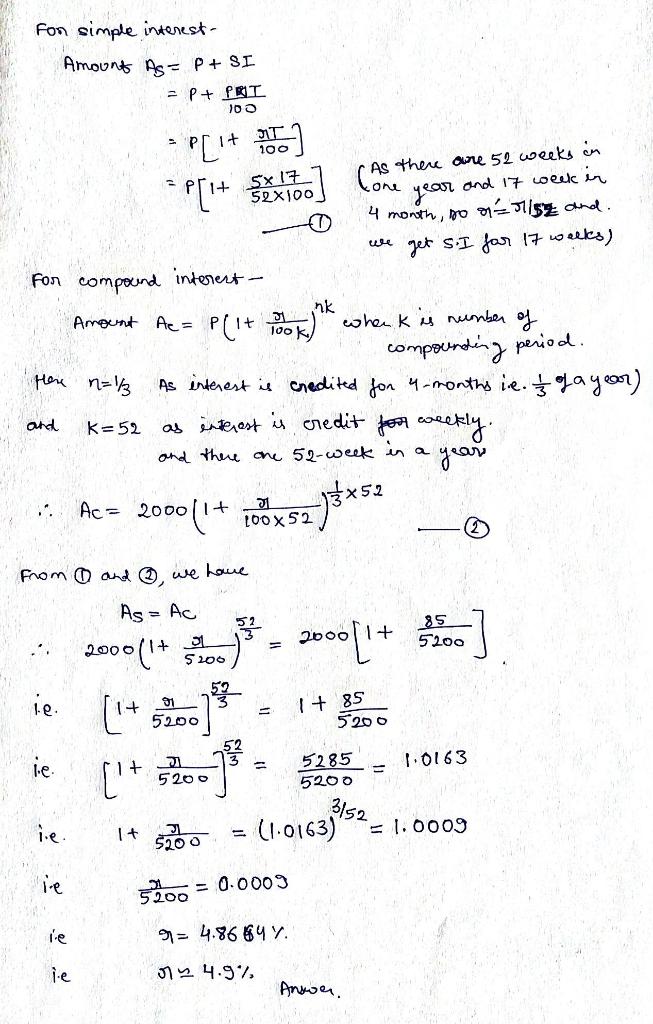 For simple interest-
Amount As = P + SI
= P + PRT/100
= P[1 + rT/100]
= P[1 + 5×17/52×100] (As there are 52 weeks in one year and 17 week in 4 month, so r' = r/52 and we get S.I for 17 weeks)
—①
For compound interest—
Amount Ac = P(1 + r/100k)^nk when k is number of compounding period.
Here n=1/3 As interest is credited for 4-months i.e. 1/3 of a year)
and K=52 as interest is credit weekly.
and there are 52-week in a year
∴ Ac = 2000(1 + r/100×52)^1/3×52 —②
From ① and ②, we have
As = Ac
∴ 2000(1 + r/5200)^52/3 = 2000[1 + 85/5200]
i.e. [1 + r/5200]^52/3 = 1 + 85/5200
i.e. [1 + r/5200]^52/3 = 5285/5200 = 1.0163
i.e. 1 + r/5200 = (1.0163)^3/52 = 1.0009
i.e r/5200 = 0.0009
i.e r = 4.8664%
i.e r ≃ 4.9% Answer.